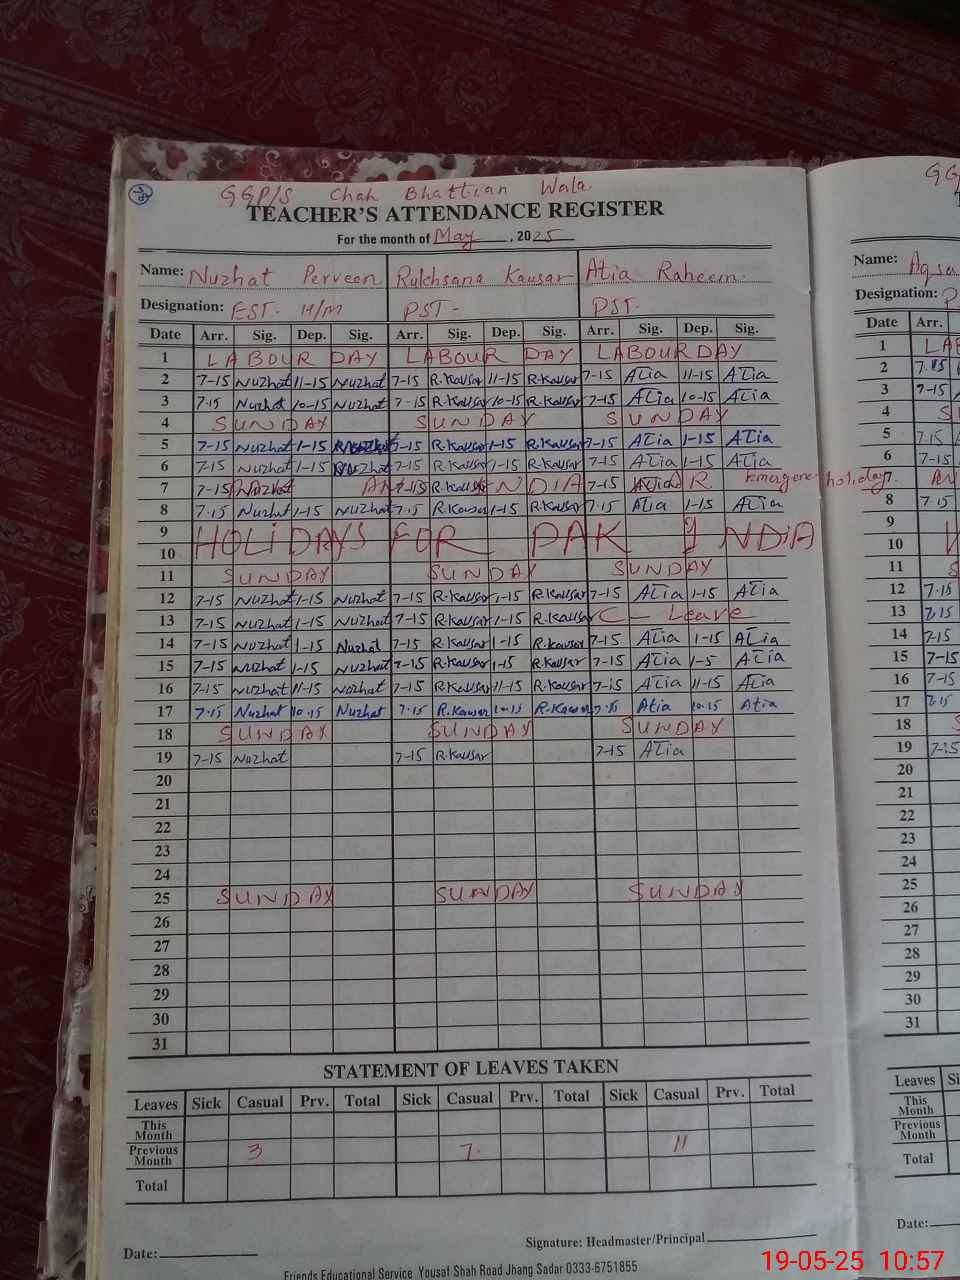 GGP/S Chah Bhattian Wala
TEACHER'S ATTENDANCE REGISTER
For the month of May, 2025
Name: Nuzhat Perveen Rukhsana Kausar Atia Raheem.
Designation: EST. H/M PST- PST-
Date Arr. Sig. Dep. Sig. Arr. Sig. Dep. Sig. Arr. Sig. Dep. Sig.
1 LABOUR DAY LABOUR DAY LABOUR DAY
2 7-15 Nuzhat 11-15 Nuzhat 7-15 R.Kausar 11-15 R.Kausar 7-15 Atia 11-15 Atia
3 7-15 Nuzhat 10-15 Nuzhat 7-15 R.Kausar 10-15 R.Kausar 7-15 Atia 10-15 Atia
4 SUNDAY SUNDAY SUNDAY
5 7-15 Nuzhat 1-15 Nuzhat 7-15 R.Kausar 1-15 R.Kausar 7-15 Atia 1-15 Atia
6 7-15 Nuzhat 1-15 Nuzhat 7-15 R.Kausar 1-15 R.Kausar 7-15 Atia 1-15 Atia
7 7-15 Nuzhat 7-15 R.Kausar INDIA 7-15 Emergency holiday.
8 7-15 Nuzhat 1-15 Nuzhat 7-15 R.Kausar 1-15 R.Kausar 7-15 Atia 1-15 Atia
9
10 HOLIDAYS FOR PAK INDIA
11 SUNDAY SUNDAY SUNDAY
12 7-15 Nuzhat 1-15 Nuzhat 7-15 R.Kausar 1-15 R.Kausar 7-15 Atia 1-15 Atia
13 7-15 Nuzhat 1-15 Nuzhat 7-15 R.Kausar 1-15 R.Kausar C - Leave
14 7-15 Nuzhat 1-15 Nuzhat 7-15 R.Kausar 1-15 R.Kausar 7-15 Atia 1-15 Atia
15 7-15 Nuzhat 1-15 Nuzhat 7-15 R.Kausar 1-15 R.Kausar 7-15 Atia 1-5 Atia
16 7-15 Nuzhat 11-15 Nuzhat 7-15 R.Kausar 11-15 R.Kausar 7-15 Atia 11-15 Atia
17 7-15 Nuzhat 10-15 Nuzhat 7-15 R.Kausar 10-15 R.Kausar 7-15 Atia 10-15 Atia
18 SUNDAY SUNDAY SUNDAY
19 7-15 Nuzhat 7-15 R.Kausar 7-15 Atia
20
21
22
23
24
25 SUNDAY SUNDAY SUNDAY
26
27
28
29
30
31
STATEMENT OF LEAVES TAKEN
Leaves Sick Casual Prv. Total Sick Casual Prv. Total Sick Casual Prv. Total
This Month
Previous Month 3 7. 11
Total
Date:
Signature: Headmaster/Principal
Friends Educational Service Yousaf Shah Road Jhang Sadar 0333-6751855
Name: Aqsa
Designation:
Date Arr.
1
2 7.15
3 7-15
4
5 7.15
6 7-15
7
8 7.15
9
10
11
12 7.15
13 7.15
14 7-15
15 7-15
16 7-15
17 7.15
18
19 7-15
20
21
22
23
24
25
26
27
28
29
30
31
Leaves
This Month
Previous Month
Total
Date:
19-05-25 10:57